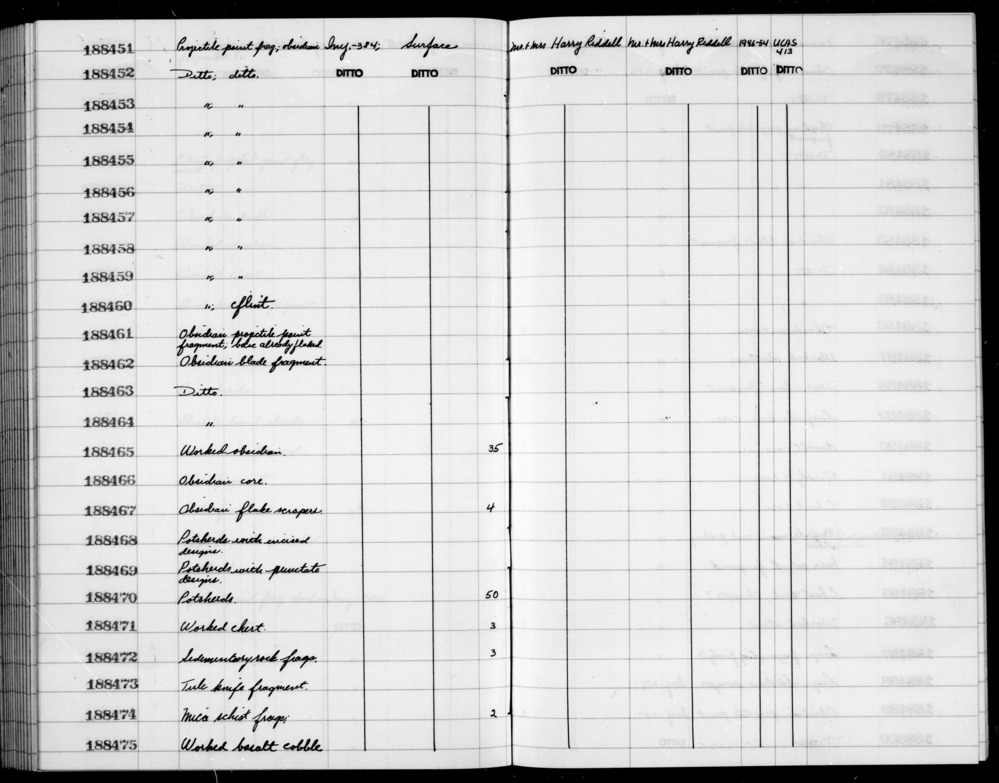 188451 Projectile point frag; obsidian Iny.-384; Surface Mr. & Mrs Harry Riddell Mr. & Mrs Harry Riddell 1946-54 UCAS 413
188452 Ditto; ditto. DITTO DITTO DITTO DITTO DITTO DITTO
188453 "; "
188454 "; "
188455 "; "
188456 "; "
188457 "; "
188458 "; "
188459 "; "
188460 "; flint.
188461 Obsidian projectile point
fragment; base already flaked
188462 Obsidian blade fragment.
188463 Ditto.
188464 "
188465 Worked obsidian. 35
188466 Obsidian core.
188467 Obsidian flake scrapers. 4
188468 Potsherds with incised
designs.
188469 Potsherds with punctate
designs.
188470 Potsherds. 50
188471 Worked chert. 3
188472 Sedimentary rock frags. 3
188473 Tule knife fragment.
188474 Mica schist frags; 2
188475 Worked basalt cobble